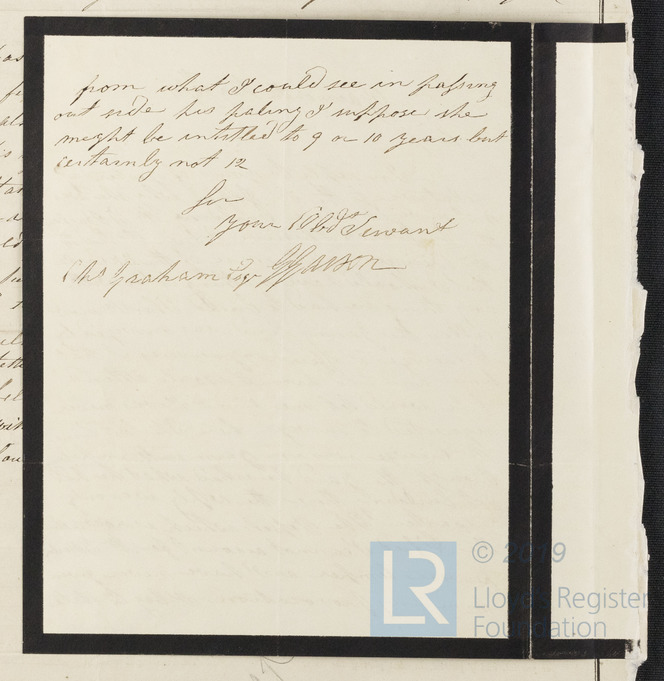 from what I could see in passing
out side his paling I suppose she
meight be intitled to 9 or 10 years but
certainly not 12
Sir
your Obdt Servant
Chs Graham Esqr
LR
© 2019
Lloyd's Register
Foundation